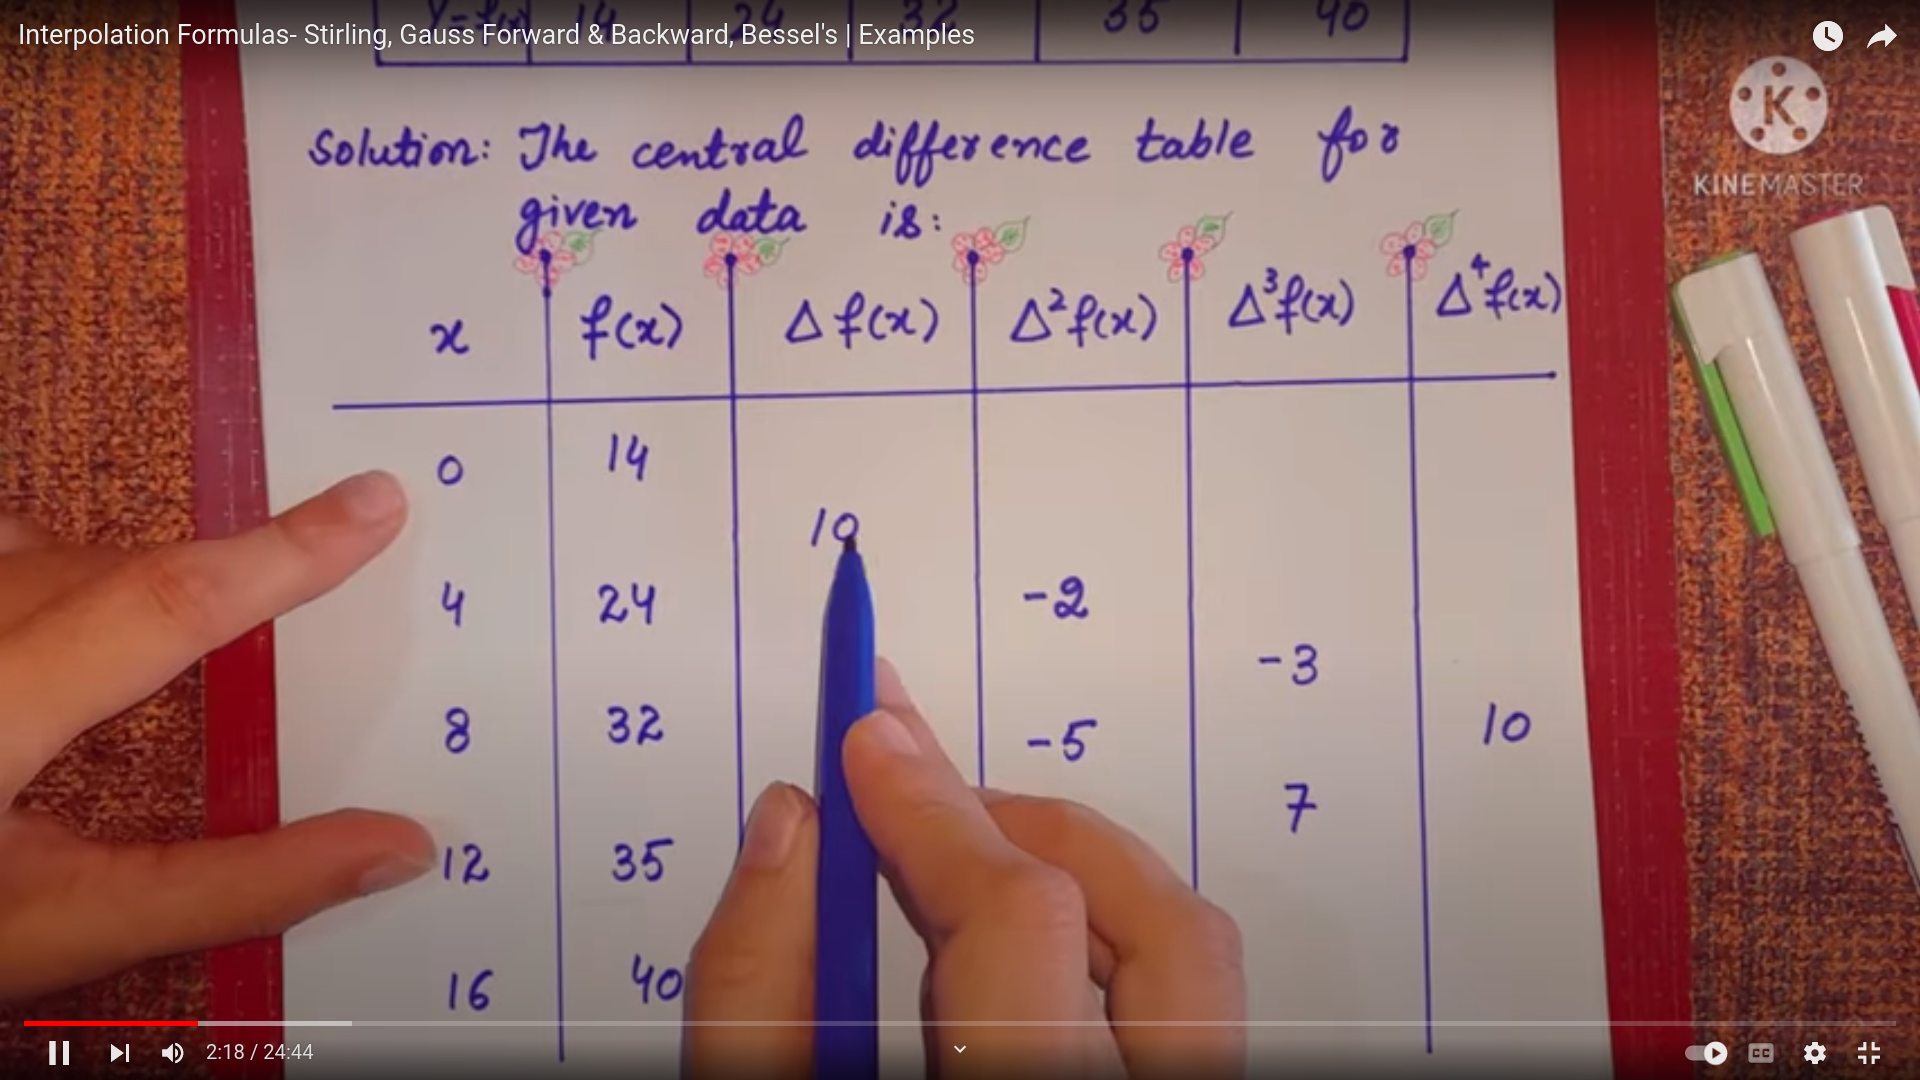 Interpolation Formulas- Stirling, Gauss Forward & Backward, Bessel's | Examples
Y=f(x) 14 24 32 35 40
K
KINEMASTER
Solution: The central difference table for
given data is:
x f(x) Δf(x) Δ²f(x) Δ³f(x) Δ⁴f(x)
0 14
10
4 24 -2
-3
8 32 -5 10
7
12 35
16 40
2:18 / 24:44
CC